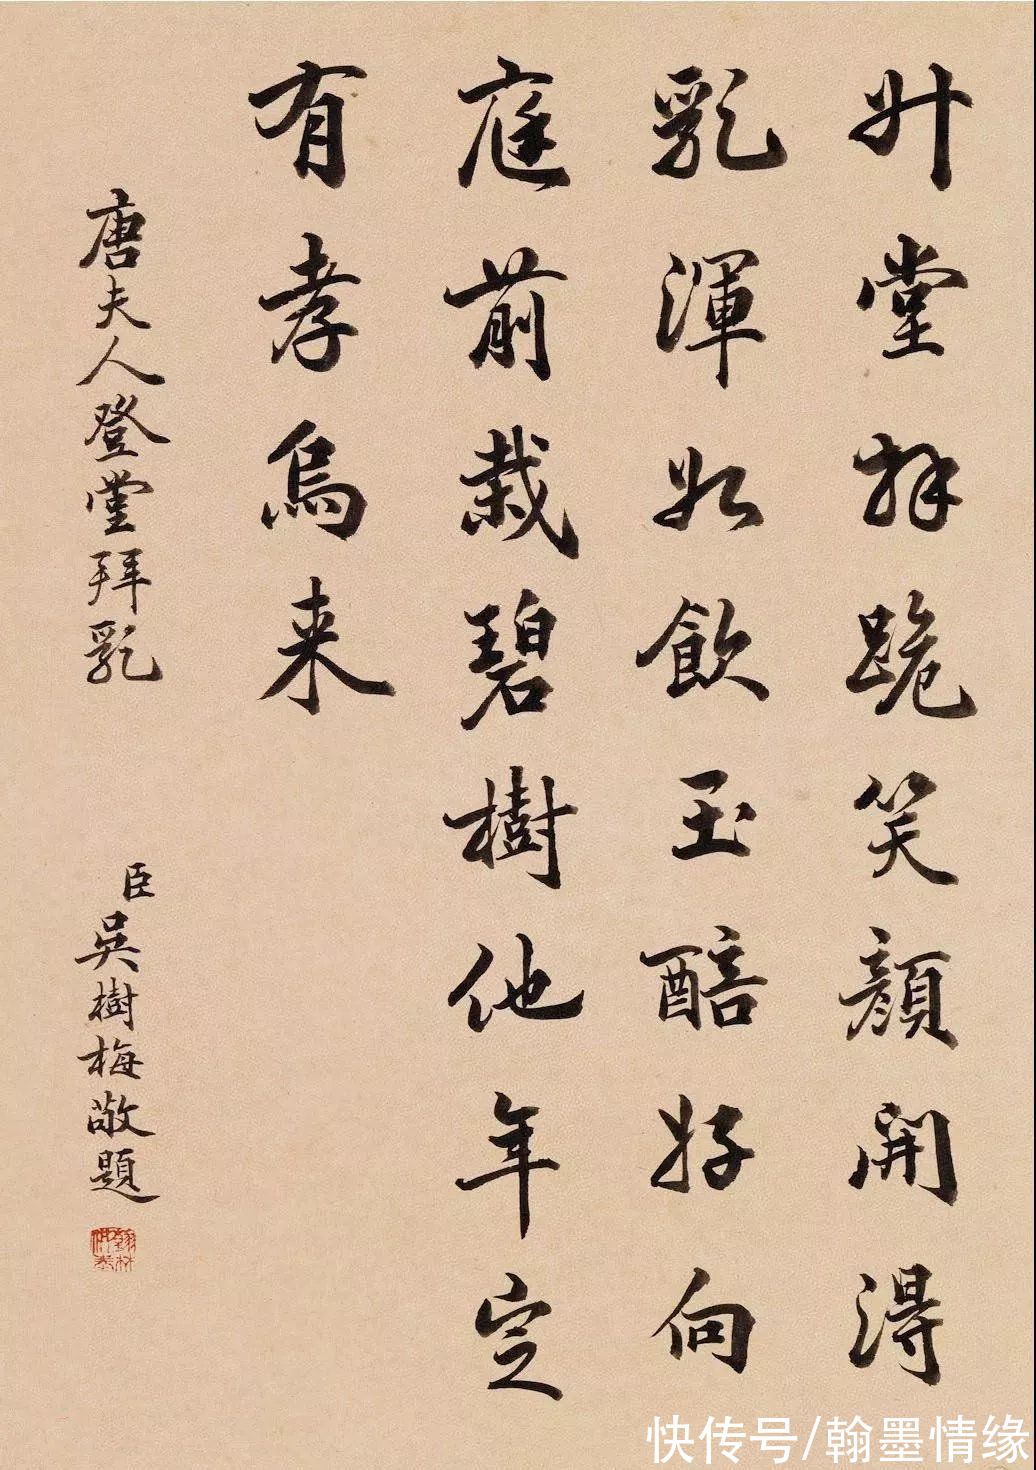 升堂拜跪笑顏開得
乳渾如飲玉醅好向
庭前栽碧樹他年定
有孝烏来
唐夫人登堂拜乳
臣吳樹梅敬題
快传号/翰墨情缘